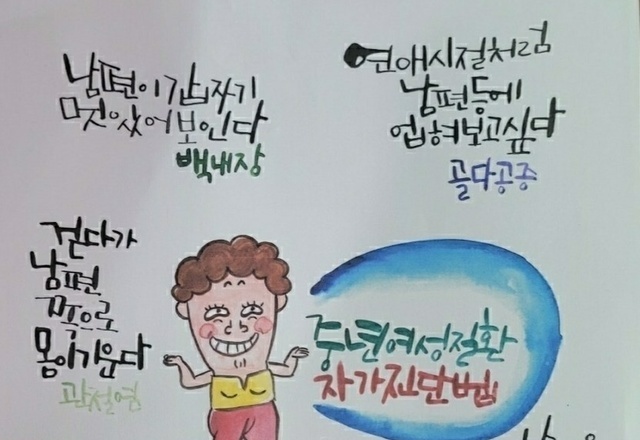 남편이 갑자기
멋있어 보인다
백내장
연애시절처럼
남편등에
업혀보고싶다
골다공증
걷다가
남편
쪽으로
몸이기운다
관절염
중년여성질환
자가진단법